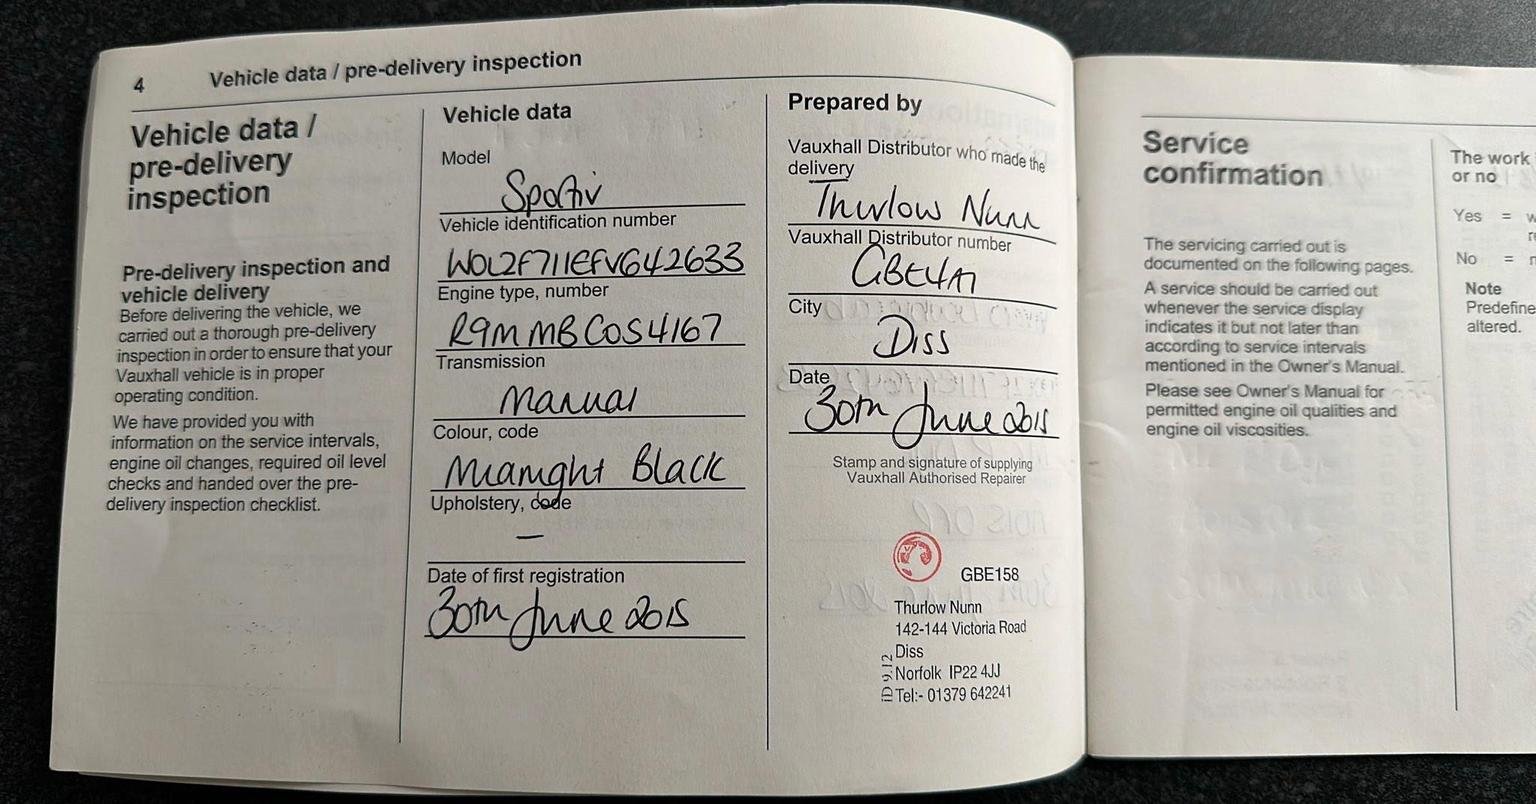 4
Vehicle data / pre-delivery inspection
Vehicle data /
pre-delivery
inspection
Pre-delivery inspection and
vehicle delivery
Before delivering the vehicle, we
carried out a thorough pre-delivery
inspection in order to ensure that your
Vauxhall vehicle is in proper
operating condition.
We have provided you with
information on the service intervals,
engine oil changes, required oil level
checks and handed over the pre-
delivery inspection checklist.
Vehicle data
Model
Sportiv
Vehicle identification number
W0L2F711EFV642633
Engine type, number
R9M MB COS4167
Transmission
Manual
Colour, code
Midnight Black
Upholstery, code
—
Date of first registration
30th June 2015
Prepared by
Vauxhall Distributor who made the
delivery
Thurlow Nunn
Vauxhall Distributor number
City
Diss
Date
30th June 2015
Stamp and signature of supplying
Vauxhall Authorised Repairer
GBE158
Thurlow Nunn
142-144 Victoria Road
Diss
Norfolk IP22 4JJ
Tel:- 01379 642241
iD 9.12
Service
confirmation
The servicing carried out is
documented on the following pages.
A service should be carried out
whenever the service display
indicates it but not later than
according to service intervals
mentioned in the Owner's Manual.
Please see Owner's Manual for
permitted engine oil qualities and
engine oil viscosities.
The work
or no
Yes = w
No = n
Note
Predefine
altered.